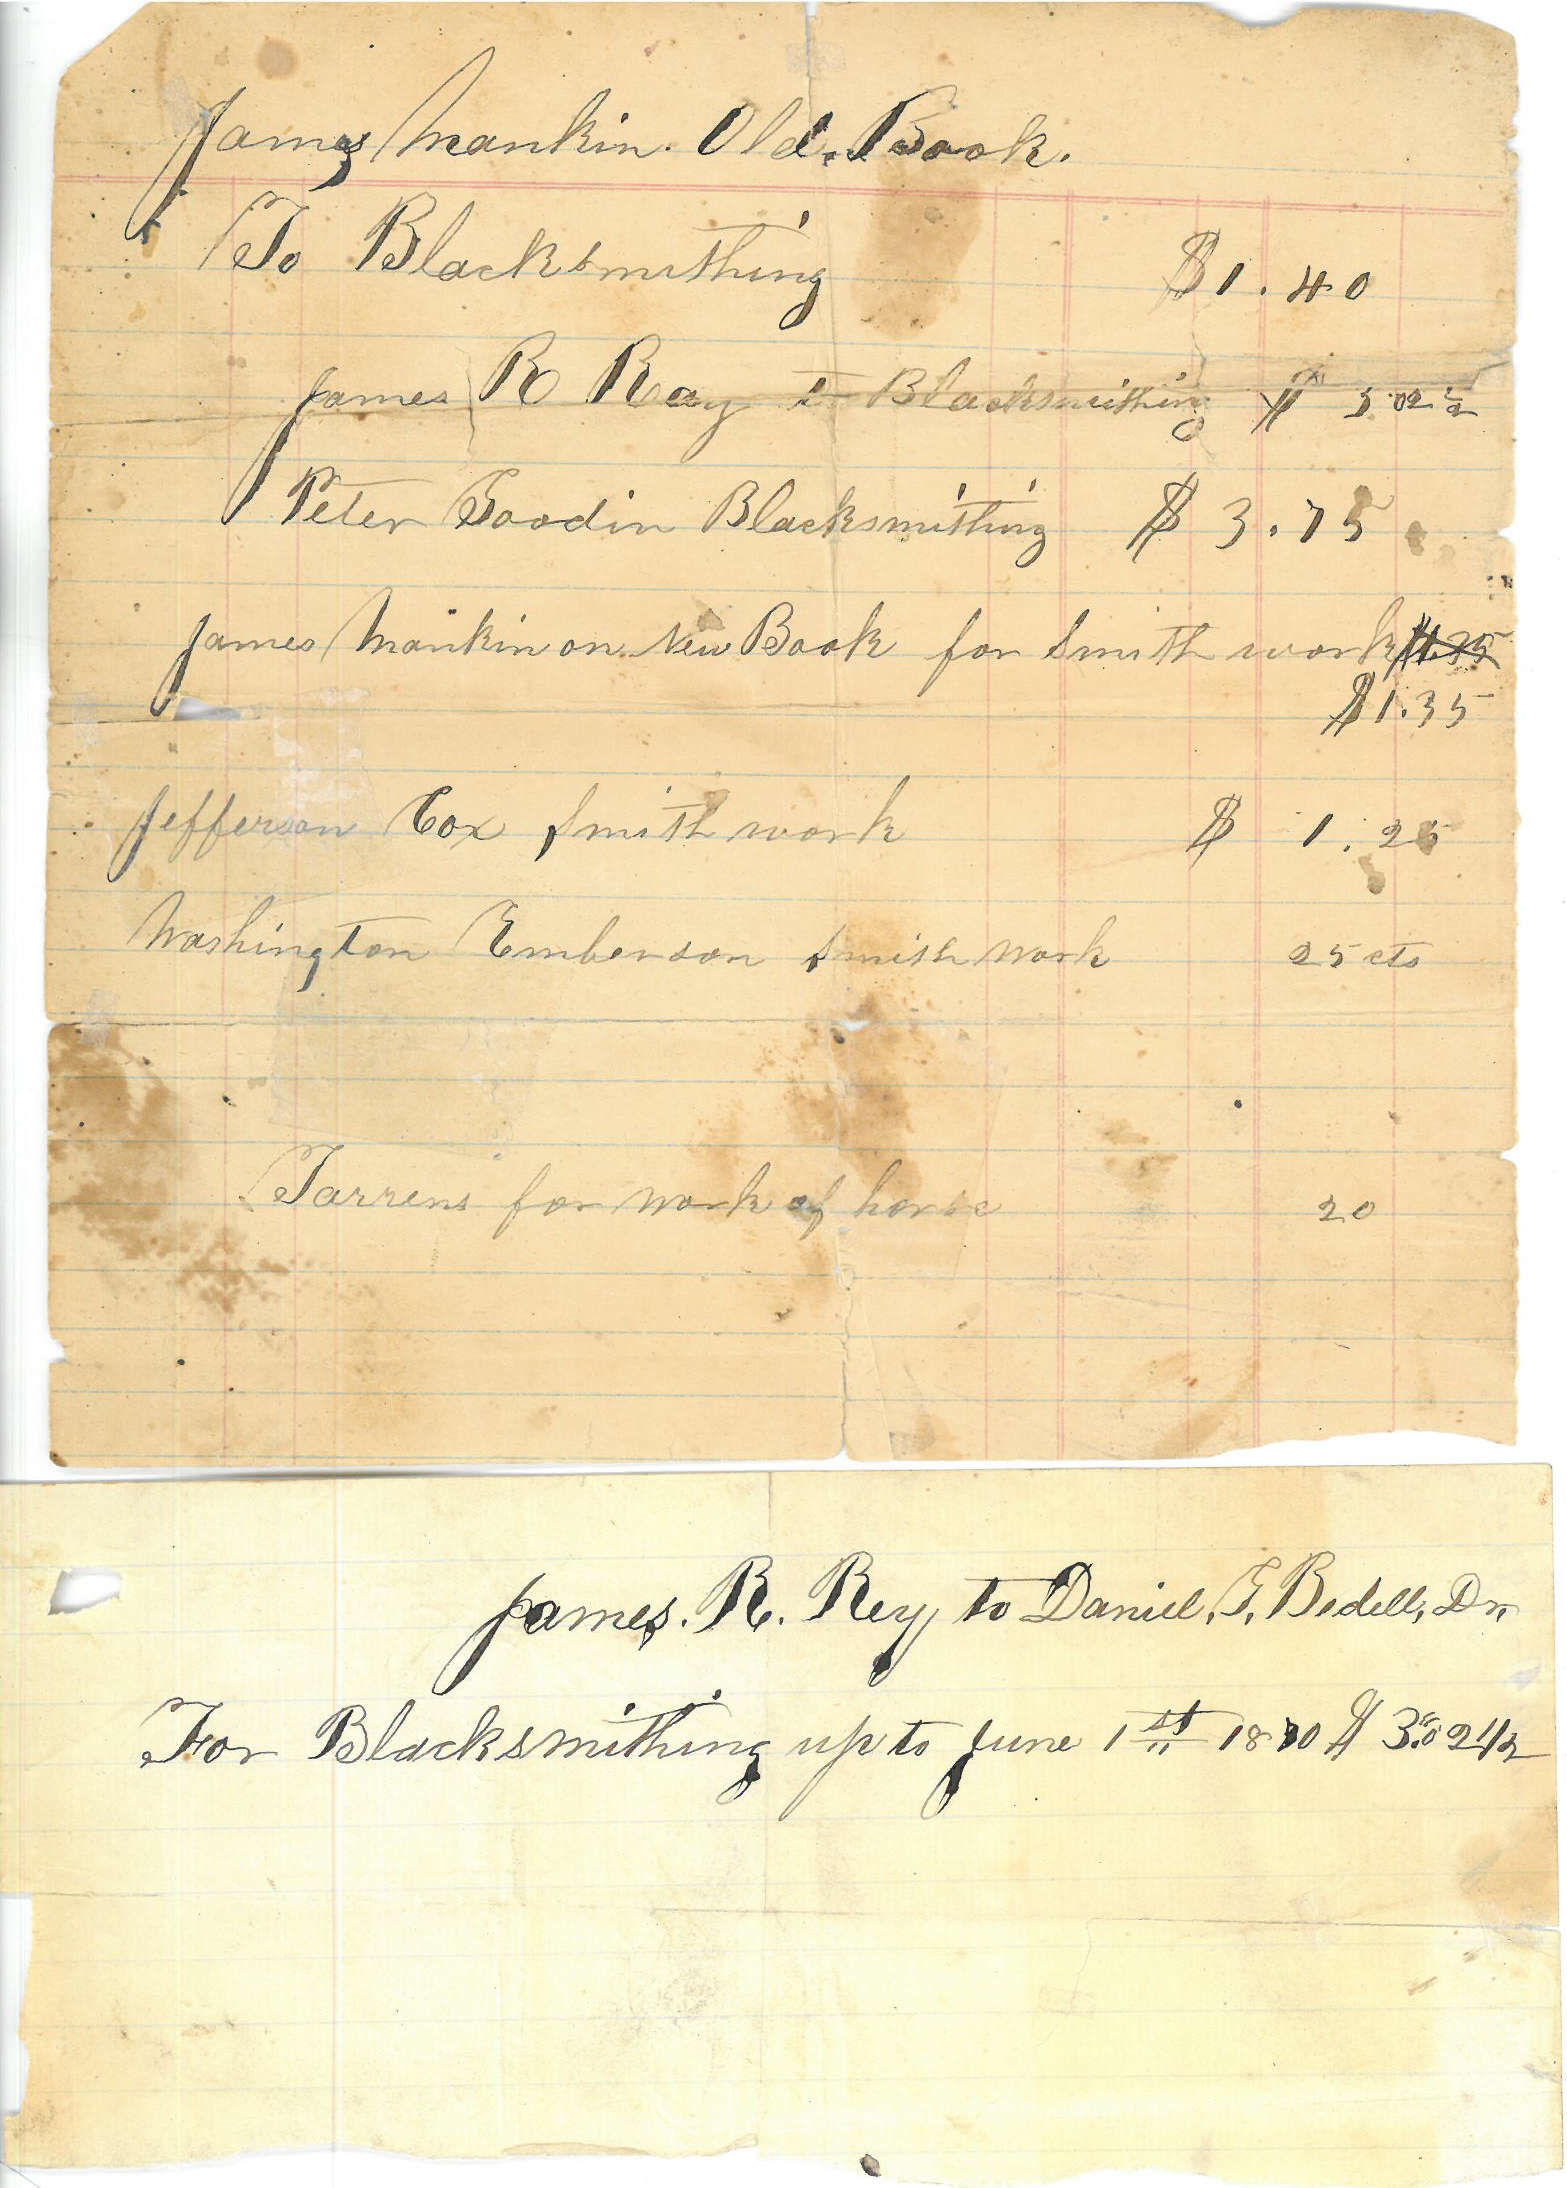 James Mankin. Old. Book.
To Blacksmithing $1.40
James R Ray to Blacksmithing $ 3.02 1/2
Peter Goodin Blacksmithing $ 3.75
James Mankin on New Book for Smith work
$1.35
Jefferson Cox Smith work $ 1.25
Washington Emberson Smith work 25 cts
Tarrens for work of horse 20
James. R. Rey to Daniel. T. Bedell, Dr,,
For Blacksmithing up to June 1st 1870 $ 3.02 1/2